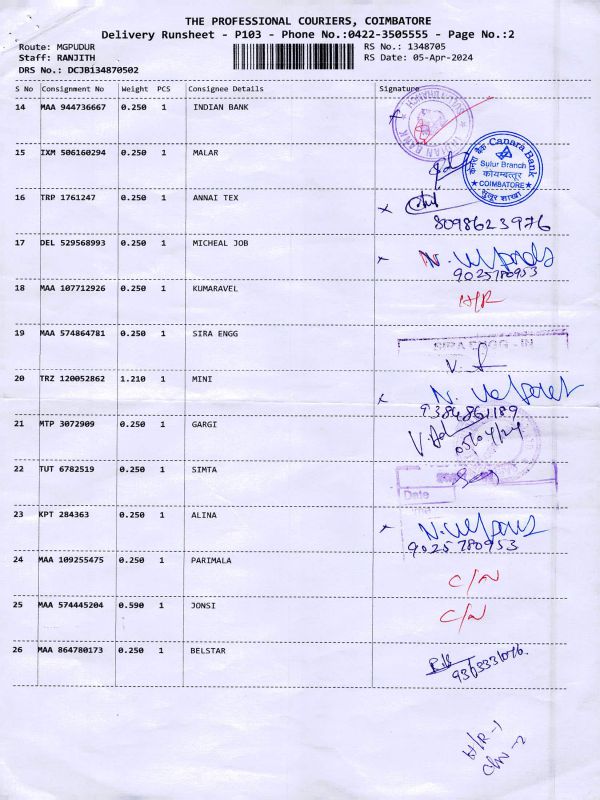 THE PROFESSIONAL COURIERS, COIMBATORE
Delivery Runsheet - P103 - Phone No.:0422-3505555 - Page No.:2
Route: MGPUDUR RS No.: 1348705
Staff: RANJITH RS Date: 05-Apr-2024
DRS No.: DCJB134870502
S No Consignment No Weight PCS Consignee Details Signature
14 MAA 944736667 0.250 1 INDIAN BANK
INDIAN BANK
15 IXM 506160294 0.250 1 MALAR
केनरा बैंक Canara Bank
Sulur Branch
कोयम्बत्तूर
COIMBATORE
सुलूर शाखा
16 TRP 1761247 0.250 1 ANNAI TEX
8098623976
17 DEL 529568993 0.250 1 MICHEAL JOB
9025780953
18 MAA 107712926 0.250 1 KUMARAVEL H/R
19 MAA 574864781 0.250 1 SIRA ENGG
SIRA ENGG - IN
20 TRZ 120052862 1.210 1 MINI
9384861189
21 MTP 3072909 0.250 1 GARGI
05/04/24
22 TUT 6782519 0.250 1 SIMTA
Date
23 KPT 284363 0.250 1 ALINA
9025780953
24 MAA 109255475 0.250 1 PARIMALA C/N
25 MAA 574445204 0.590 1 JONSI C/N
26 MAA 864780173 0.250 1 BELSTAR
H/R-1
C/N-2